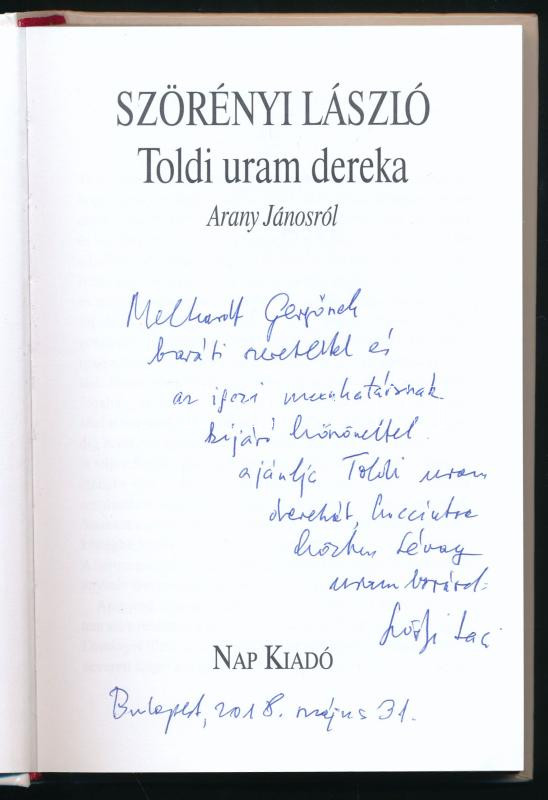 SZÖRÉNYI LÁSZLÓ
Toldi uram dereka
Arany Jánosról
Melhardt Gergőnek
baráti szeretettel és
az igazi munkatársnak
kijáró köszönettel
ajánlja Toldi uram
derekát,
közben Lévay
uram
Laci
NAP KIADÓ
Budapest, 2018. május 31.